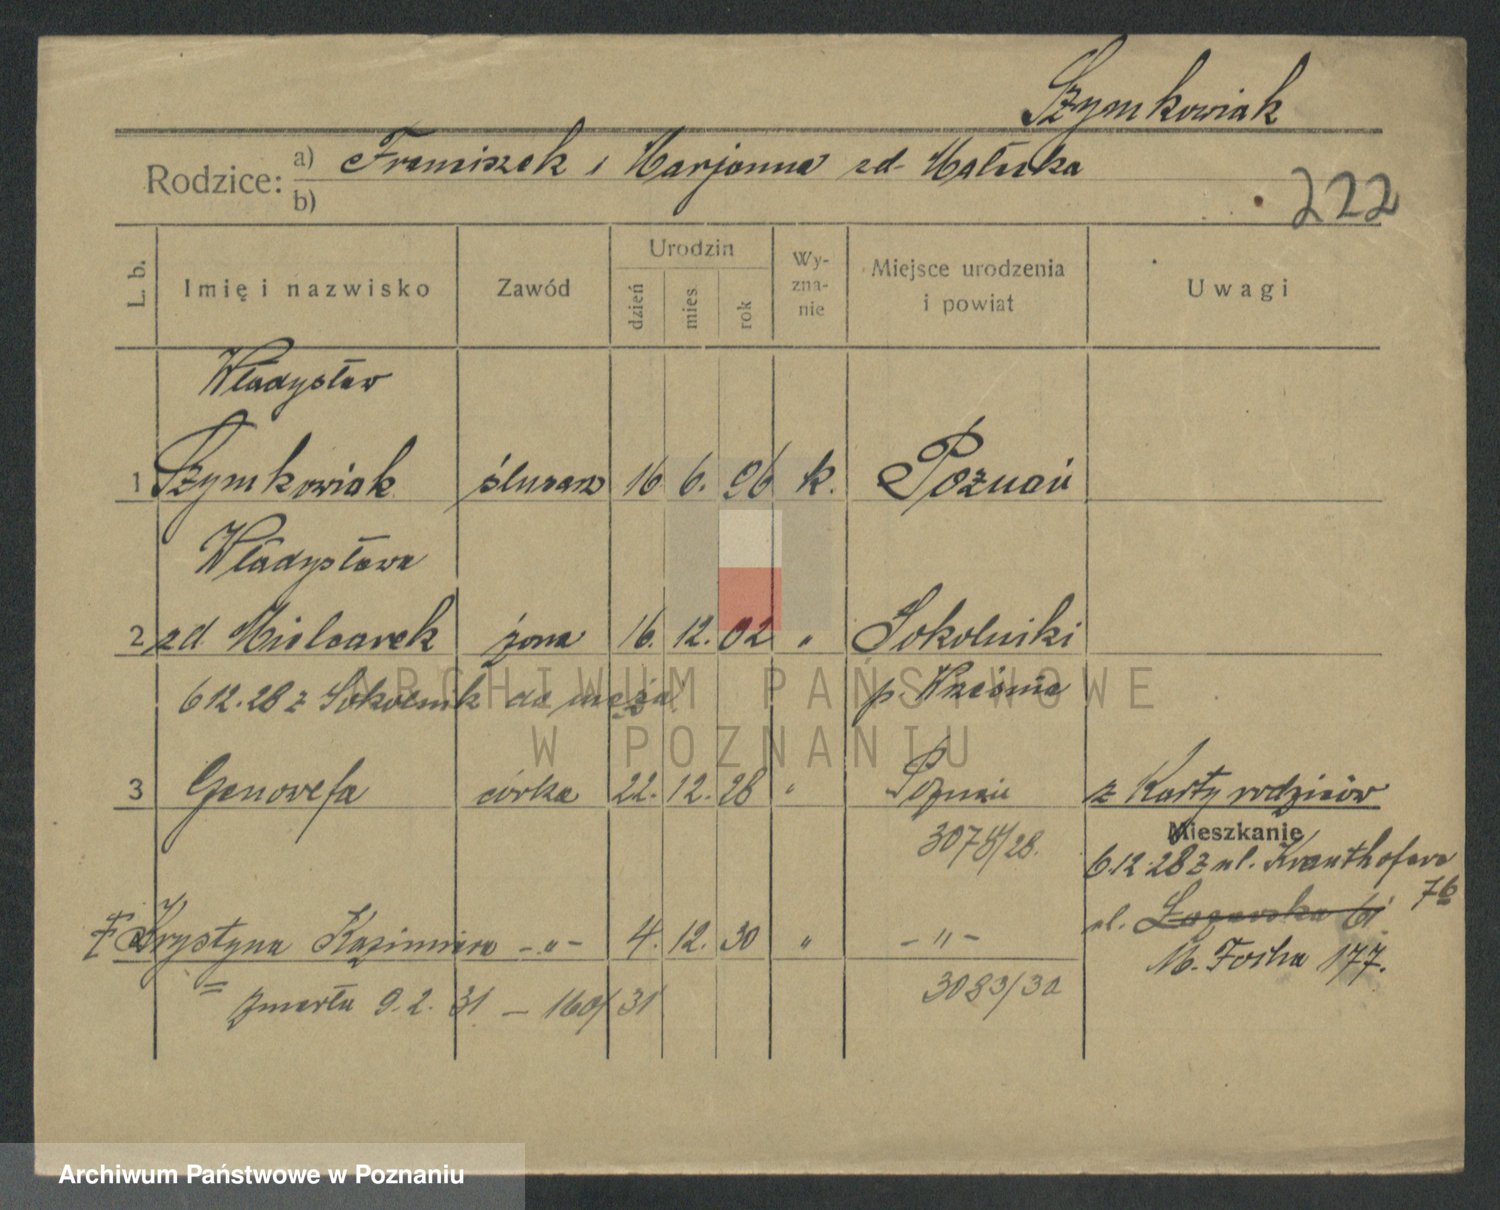 Szymkowiak
Rodzice: a) Franciszek i Marjanna zd Matuska
b)
222
L. b. Imię i nazwisko Zawód Urodzin dzień mies. rok Wy-zna-nie Miejsce urodzenia i powiat Uwagi
Władysław
1 Szymkowiak ślusarz 16 6. 96 k. Poznań
Władysława
2 zd. Mielcarek żona 16. 12. 02 " Sokolniki
6 12.28 z Sokolnik do męża p. Września
3 Genowefa córka 22. 12. 28 " Poznań z Karty rodziców
3075/28. Mieszkanie
6.12.28 z ul. Krauthofera 76
ul. Łazarska 61
Krystyna Kazimiera -"- 4. 12. 30 " -"- M. Focha 177.
zmarła 9.2.31 – 160/31 3083/30
ARCHIWUM PAŃSTWOWE
W POZNANIU
Archiwum Państwowe w Poznaniu